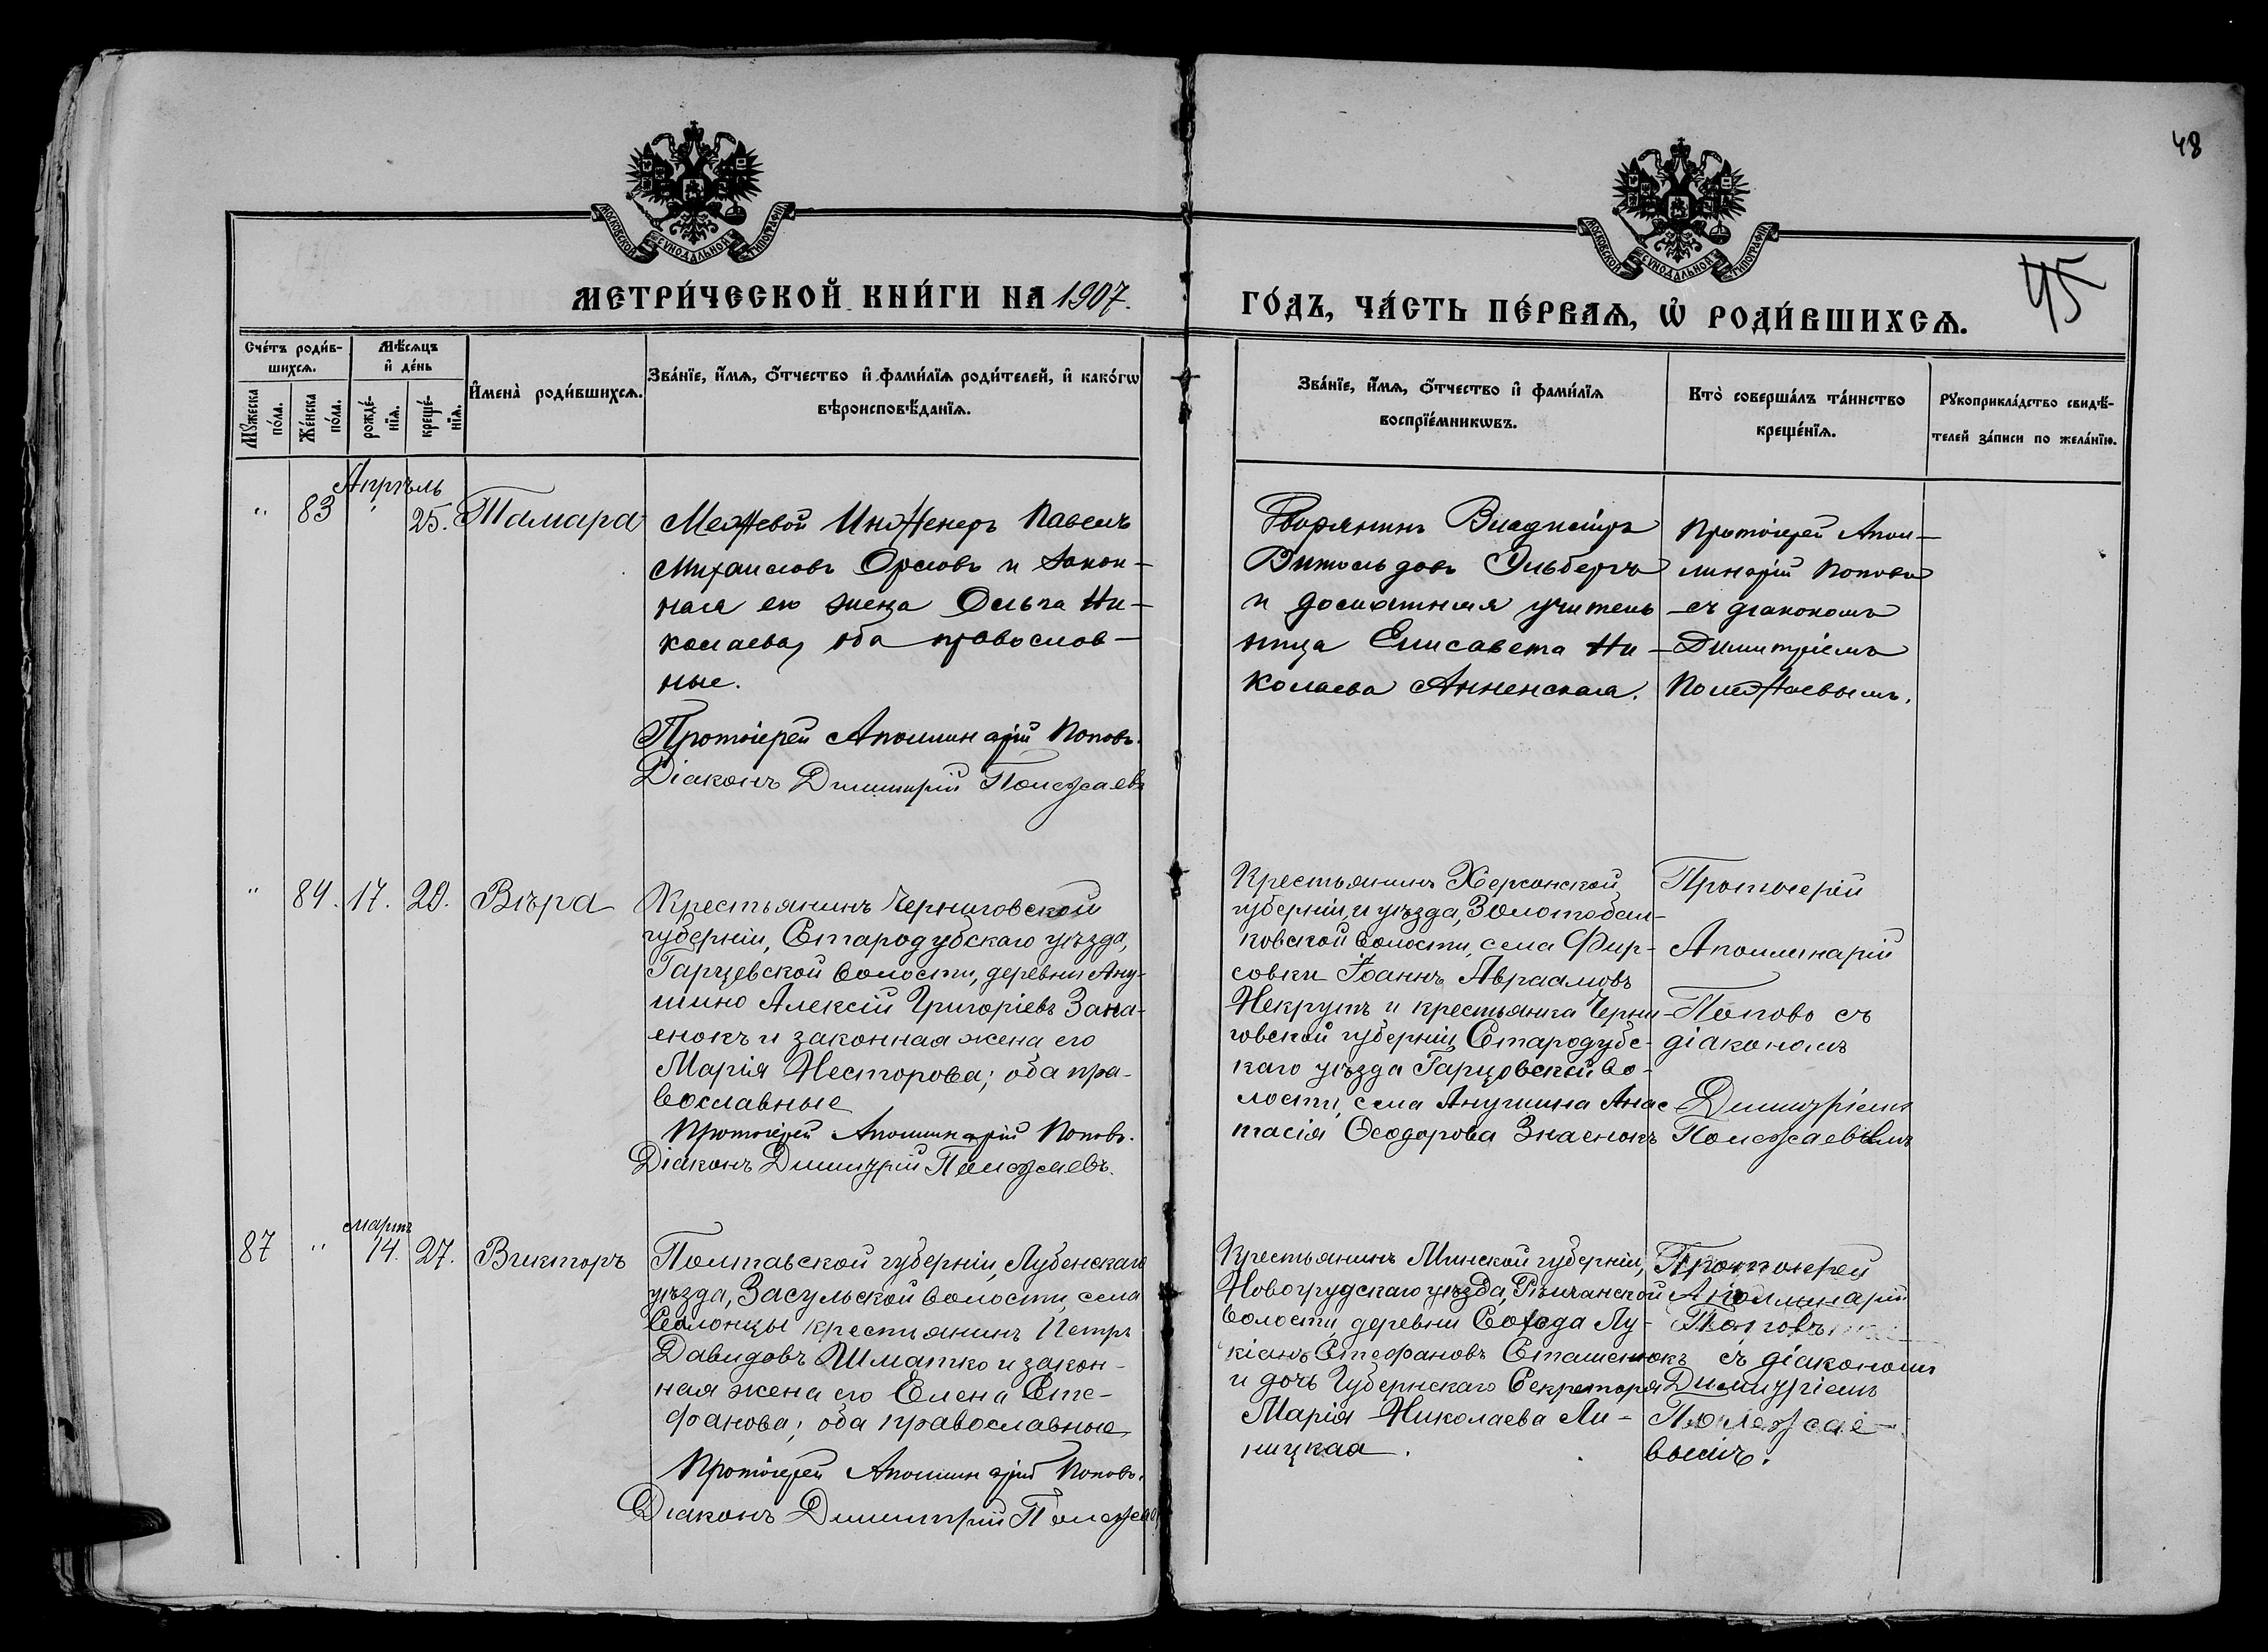 48
45
МОСКОВСКОЙ СѴНОДАЛЬНОЙ ТИПОГРАФІИ
МОСКОВСКОЙ СѴНОДАЛЬНОЙ ТИПОГРАФІИ
МЕТРИ́ЧЕСКОЙ КНИ́ГИ НА 1907.
ГО́ДЪ, ЧА́СТЬ ПЕ́РВАѦ, Ѽ РОДИ́ВШИХСѦ.
Сче́тъ роди́в-
шихсѧ.
Мѣ́сѧцъ
и҆ де́нь
Мꙋ́жеска
по́ла.
Же́нска
по́ла.
рожде́-
нїѧ.
креще́-
нїѧ.
И҆мена̀ роди́вшихсѧ.
Зва́нїе, и҆́мѧ, ѻ҆́тчество и҆ фами́лїѧ роди́телей, и҆ како́гѡ
вѣроисповѣ́данїѧ.
Зва́нїе, и҆́мѧ, ѻ҆́тчество и҆ фами́лїѧ
воспрїе́мникѡвъ.
Кто̀ соверша́лъ та́инство
креще́нїѧ.
Рꙋкоприкла́дство свидѣ́-
телей за́писи по жела́нїю.
Апрѣль
" 83 25. Тамара
Межевой Инженеръ Павелъ
Михаиловъ Орловъ и закон-
ная его жена Ольга Ни-
колаева, оба православ-
ные.
Протоіерей Аполлинарій Поповъ.
Діаконъ Димитрій Полежаевъ
Дворянинъ Владиміръ
Витольдовъ Эльбертъ
и домашняя учитель
ница Елисавета Ни-
колаева Анненская.
Протоіерей Апол-
линарій Поповъ
съ діакономъ
Димитріемъ
Полежаевымъ.
" 84. 17. 29. Вѣра
Крестьянинъ Черниговской
губерніи, Стародубскаго уѣзда,
Гарцевской волости, деревни Ану-
шино Алексій Григоріевъ Зана-
енокъ и законная жена его
Марія Несторова; оба пра-
вославные
Протоіерей Аполлинарій Поповъ.
Діаконъ Димитрій Полежаевъ.
Крестьянинъ Херсонской
губерніи, и уѣзда, Золотобал-
ковской волости, села Фир-
совки Іоаннъ Авраамовъ
Некрутъ и крестьянка Черни-
говской губерніи, Стародубс-
каго уѣзда Гарцовской во-
лости, села Анушина Анас
тасія Ѳеодорова Знаенокъ
Протоіерей
Аполлинарій
Поповъ съ
діакономъ
Димитріемъ
Полежаевымъ
мартъ
87 " 14. 27. Викторъ
Полтавской губерніи, Лубенскаго
уѣзда, Засульской волости, села
Солонцы крестьянинъ Петръ
Давидовъ Шматко и закон-
ная жена его Елена Сте-
фанова; оба православные
Протоіерей Аполлинарій Поповъ.
Діаконъ Димитрій Полежаевъ
Крестьянинъ Минской губерніи,
Новогрудскаго уѣзда, волости, деревни Лу-
кіанъ Стефановъ Сташенокъ
и дочь Губернскаго Секретаря
Марія Николаева Ли-
ницкая.
Протоіерей
Аполлинарій
Поповъ
съ діакономъ
Димитріемъ
Полежае-
вымъ.